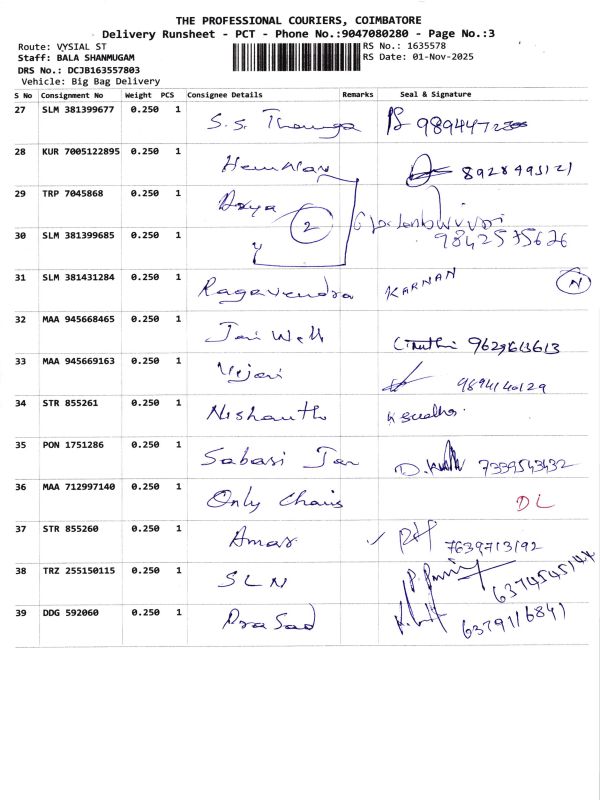 THE PROFESSIONAL COURIERS, COIMBATORE
Delivery Runsheet - PCT - Phone No.:9047080280 - Page No.:3
Route: VYSIAL ST
RS No.: 1635578
Staff: BALA SHANMUGAM
RS Date: 01-Nov-2025
DRS No.: DCJB163557803
Vehicle: Big Bag Delivery
S No Consignment No Weight PCS Consignee Details Remarks Seal & Signature
27 SLM 381399677 0.250 1 S.S.
28 KUR 7005122895 0.250 1
29 TRP 7045868 0.250 1 2
30 SLM 381399685 0.250 1 9842575626
31 SLM 381431284 0.250 1 Ragavendra KARNAN N
32 MAA 945668465 0.250 1 9629613613
33 MAA 945669163 0.250 1 9894140129
34 STR 855261 0.250 1 Nishanth
35 PON 1751286 0.250 1 Sabari 7339543432
36 MAA 712997140 0.250 1 Only Chairs DL
37 STR 855260 0.250 1 Amar 7639713192
38 TRZ 255150115 0.250 1 SLN 6374545144
39 DDG 592060 0.250 1 Prasad 6379116841